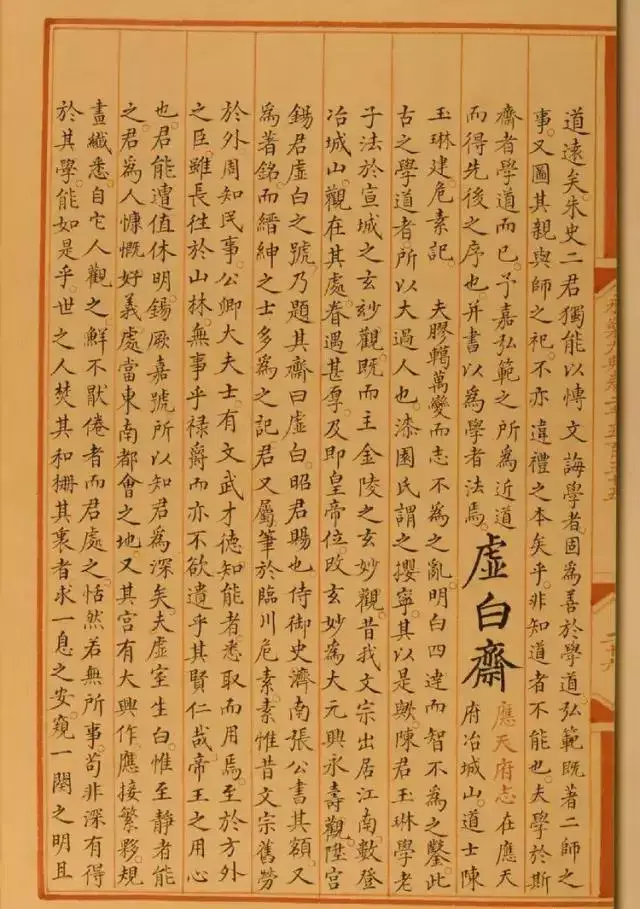 道遠矣朱史二君獨能以博文誨學者固爲善於學道弘範既著二師之
事又圖其親與師之祀不亦違禮之本矣乎非知道者不能也夫學於斯
齋者學道而已予嘉弘範之所爲近道
而得先後之序也并書以爲學者法焉
虛白齋
應天府志在應天
府冶城山道士陳
玉琳建危素記 夫膠轕萬變而志不爲之亂明白四達而智不爲之鑿此
古之學道者所以大過人也漆園氏謂之攖寧其以是歟陳君玉琳學老
子法於宣城之玄妙觀既而主金陵之玄妙觀昔我文宗出居江南數登
冶城山觀在其處眷遇甚厚及即皇帝位改玄妙爲大元興永壽觀陞宮
錫君虛白之號乃題其齋曰虛白昭君賜也侍御史濟南張公書其額又
爲著銘而縉紳之士多爲之記君又屬筆於臨川危素素惟昔文宗舊勞
於外周知民事公卿大夫士有文武才德知能者悉取而用焉至於方外
之臣雖長往於山林無事乎祿爵而亦不欲遺乎其賢仁哉帝王之用心
也君能遭值休明錫厥嘉號所以知君爲深矣夫虛室生白惟至靜者能
之君爲人慷慨好義處當東南都會之地又其宮有大興作應接繁夥規
畫纖悉自它人觀之鮮不厭倦者而君處之恬然若無所事苟非深有得
於其學能如是乎世之人焚其和柵其裏者求一息之安窺一隙之明且